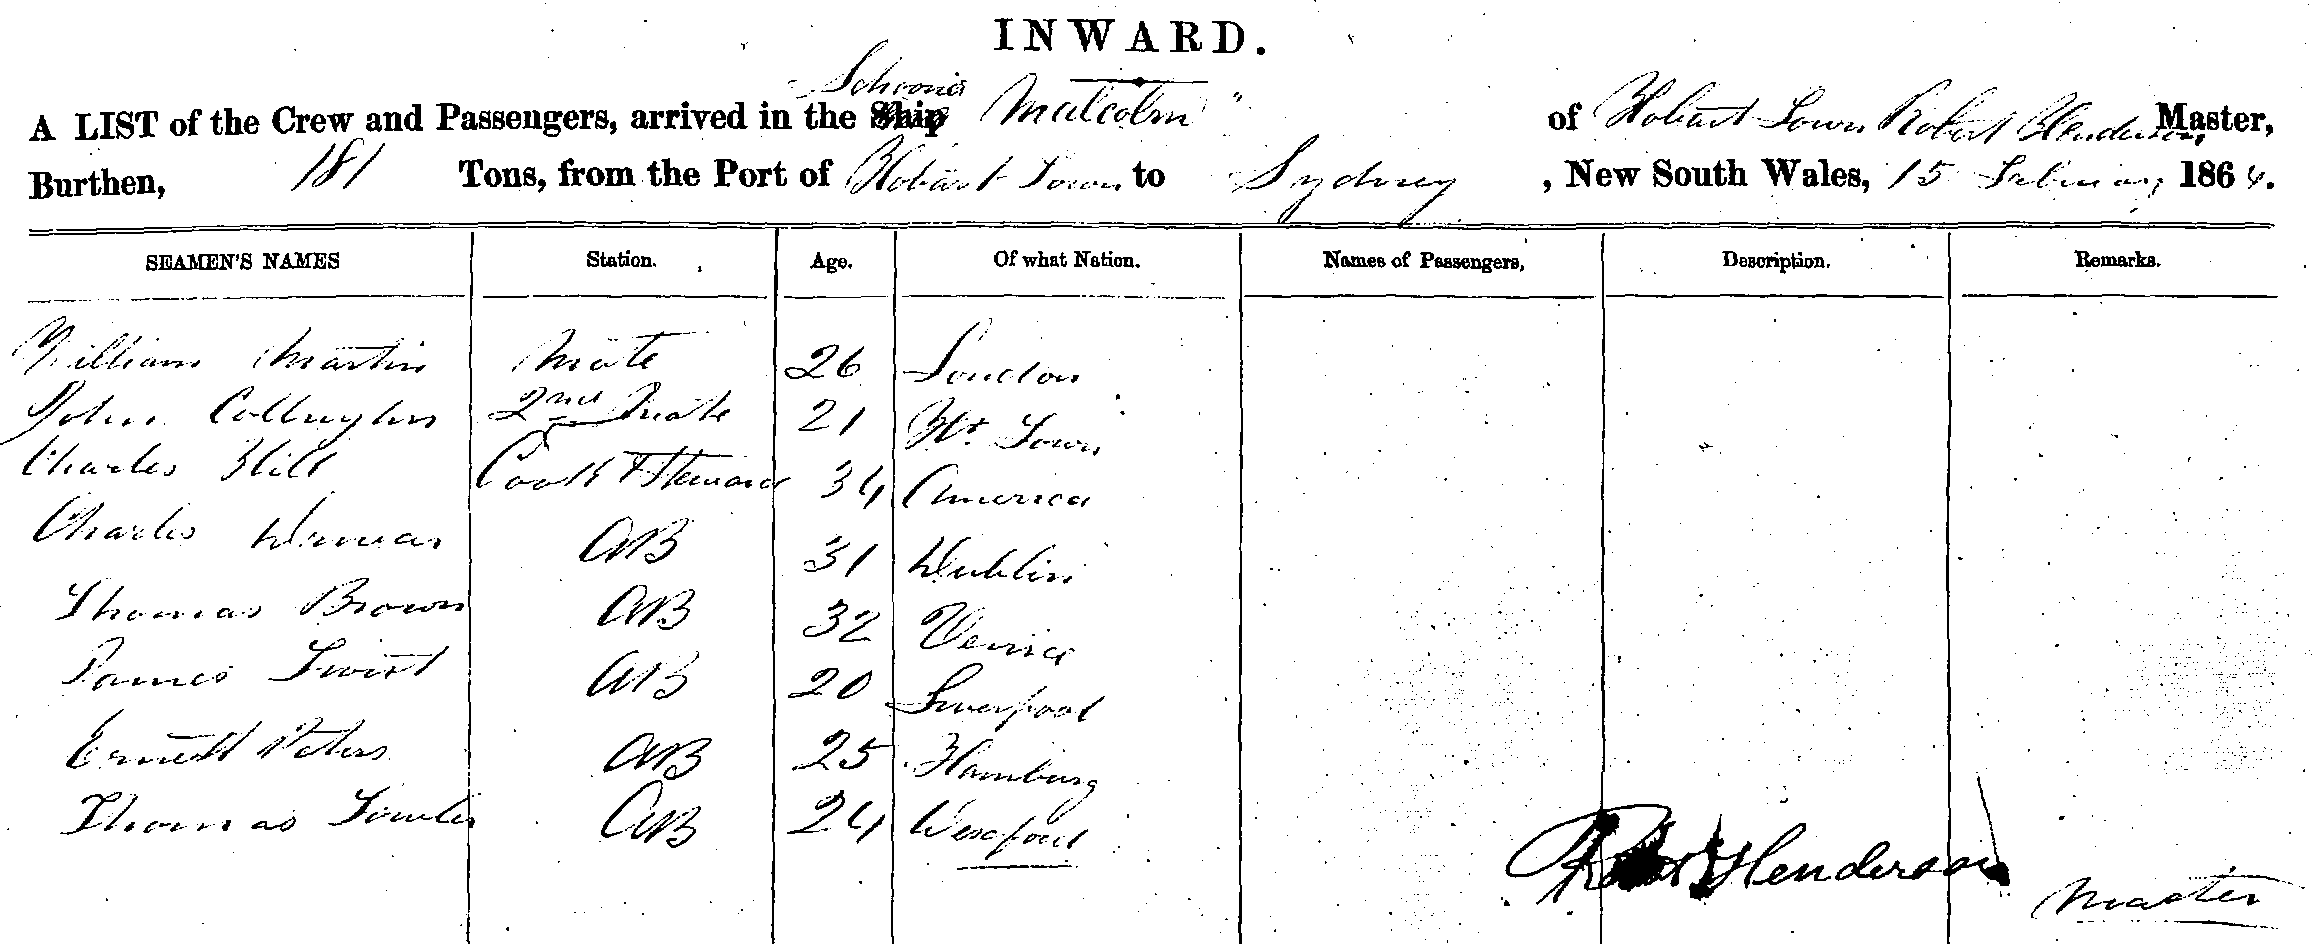 INWARD.
A LIST of the Crew and Passengers, arrived in the Ship Schooner "Malcolm" of Hobart Town Robert Henderson, Master,
Burthen, 181 Tons, from the Port of Hobart Town to Sydney, New South Wales, 15 February 1864.
SEAMEN'S NAMES Station. Age. Of what Nation. Names of Passengers, Description. Remarks.
William Martin Mate 26 London
John 2nd Mate 21 Ht. Town
Charles Hill Cook & Steward 34 America
Charles AB 31 Dublin
Thomas Brown AB 32 Venice
James Swift AB 20 Liverpool
Ernest Peters AB 25 Hamburg
Thomas AB 24 Wexford
Robt Henderson
Master